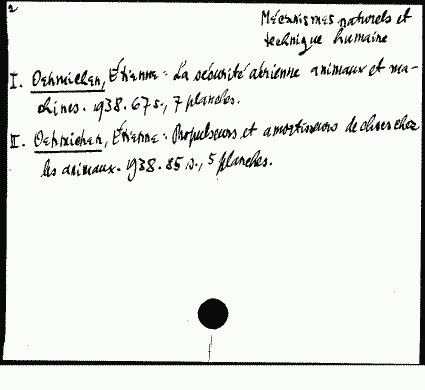 2
Mécanismes naturels et
technique humaine
I. Oehmichen, Étienne: La sécurité aérienne animaux et ma-
chines. 1938. 67 s., 7 planches.
II. Oehmichen, Étienne: Propulseurs et amortisseurs de chocs chez
les animaux. 1938. 85 s., 5 planches.